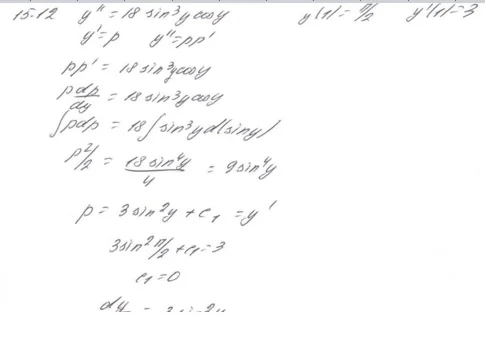 15.12 y'' = 18 sin³y cosy y(1) = π/2 y'(1) = 3
y' = p y'' = pp'
pp' = 18 sin³y cosy
p dp/dy = 18 sin³y cosy
∫pdp = 18∫sin³y d(siny)
p²/2 = 18 sin⁴y/4 = 9 sin⁴y
p = 3 sin²y + c₁ = y'
3 sin² π/2 + c₁ = 3
c₁ = 0
dy = 3 sin²y